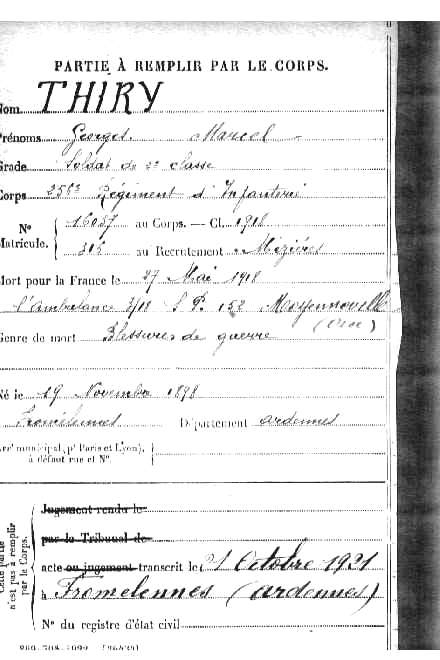 PARTIE À REMPLIR PAR LE CORPS.
Nom THIRY
Prénoms Georges Marcel
Grade Soldat de 2e classe
Corps Régiment d'Infanterie
N° Matricule. { 16057 au Corps. — Cl. 1918
au Recrutement Mézières
Mort pour la France le 27 Mai 1918
à l'ambulance 3/18 S.P. 152 (Oise)
Genre de mort Blessures de guerre
Né le 19 Novembre 1898
à Fromelennes Département ardennes
Arr' municipal (p' Paris et Lyon), à défaut rue et N°.
Cette partie n'est pas à remplir par le Corps.
Jugement rendu le
par le Tribunal de
acte ou jugement transcrit le 21 Octobre 1921
à Fromelennes (ardennes)
N° du registre d'état civil